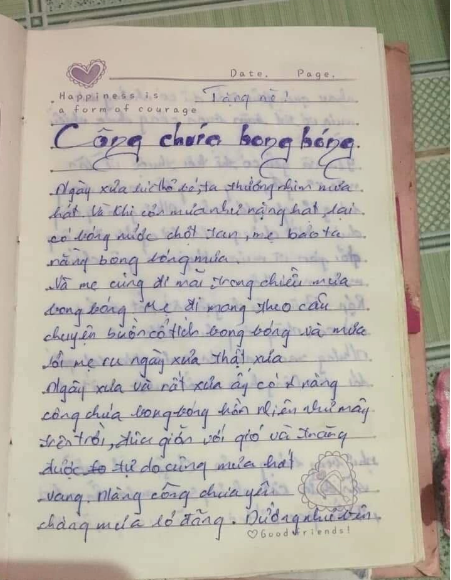 Date. Page.
Happiness is
a form of courage
Tặng mẹ!
Công chúa bong bóng.
Ngày xưa lúc thơ bé, ta thường nhìn mưa
hát. Và khi cơn mưa như nặng hạt, lại
có bóng nước chợt tan, mẹ bảo ta
rằng bong bóng mưa.
Và mẹ cũng đi mãi trong chiều mưa
bong bóng. Mẹ đi mang theo câu
chuyện buồn cổ tích bong bóng và mưa
lời mẹ ru ngày xưa thật xưa
Ngày xưa và rất xưa ấy có 1 nàng
công chúa bong bóng hồn nhiên như mây
trên trời, đùa giỡn với gió và trăng
được tự do cùng mưa hát
vang. Nàng công chúa yêu
chàng mưa lơ đãng. Dường như vẫn
Good friends!